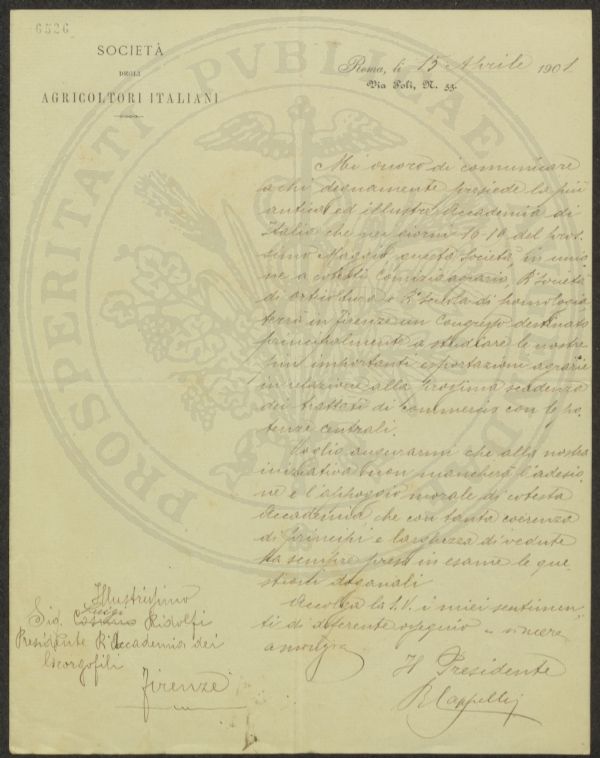 6526
SOCIETÀ
DEGLI
AGRICOLTORI ITALIANI
Roma, li 15 Aprile 1901
Via Poli, N. 53.
PROSPERITATI PVBLICAE
Mi onoro di comunicare
a chi degnamente presiede la più
antica ed illustre Accademia di
Italia che nei giorni 16 19 del pros-
simo Maggio, questa Società, in unio-
ne a cotesti Comizio agrario R. Società
di orticultura e R. Scuola di Pomologia
terrà in Firenze un Congresso destinato
principalmente a studiare le nostre
più importanti esportazioni agrarie
in relazione alla prossima scadenza
dei trattati di commercio con le po-
tenze centrali.
Voglio augurarmi che alla nostra
iniziativa non mancherà l'adesio-
ne e l'appoggio morale di cotesta
Accademia che con tanta coerenza
di principi e larghezza di vedute
ha sempre preso in esame le que-
stioni doganali
Accolga la S.V. i miei sentimen-
ti di deferente ossequio
Il Presidente
R Cappelli
Illustrissimo
Luigi
Sig. Ridolfi
Presidente R. Accademia dei
Georgofili
Firenze